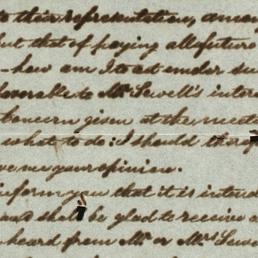 to their representation, among
but that of paying all future
how am I to act under su
favorable to Mr Sewell's inter
concern given at the meeti
what to do: I should ther
ve me your opinion.
inform you that it is intend
and shall be glad to receive a
heard from Mr or Mrs Sewe